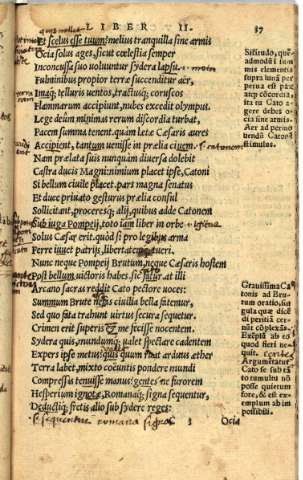 LIBER II. 87
Et scelus esse tuum: melius tranquilla sine armis
Ocia solus ages, sicut cœlestia semper
Inconcussa suo voluuntur sydera lapsu.
Fulminibus propior terræ succenditur aër,
Imaq; telluris uentos, tractusq; coruscos
Flammarum accipiunt, nubes excedit olympus.
Lege deûm minimas rerum discordia turbat,
Pacem summa tenent. quàm lętæ Cæsaris aures
Accipient, tantum uenisse in prælia ciuem.
Nam prælata suis nunquàm diuersa dolebit
Castra ducis Magni: nimium placet ipse, Catoni
Si bellum ciuile placet. pars magna senatus
Et duce priuato gesturus prælia consul
Sollicitant, proceresq; alij, quibus adde Catonem
Sub iuga Pompeij, toto iam liber in orbe
Solus Cæsar erit. quòd si pro legibus arma
Ferre iuuat patrijs, libertatemq; tueri.
Nunc neque Pompeij Brutum, neque Cæsaris hostem
Post bellum uictoris habes. sic fatur, at illi
Arcano sacras reddit Cato pectore uoces:
Summum Brute nefas ciuilia bella fatemur,
Sed quo fata trahunt uirtus secura sequetur.
Crimen erit superis & me fecisse nocentem.
Sydera quis, mundumq; ualet spectare cadentem
Expers ipse metus? quis quum ruat arduus æther
Terra labet, mixto coëuntis pondere mundi
Compressis tenuisse manus: gentes ne furorem
Hesperium ignotæ, Romanaq; signa sequentur,
Deductiq; fretis alio sub sydere reges:
Ocia
Sisifudo, quę
admodũ ĩ su
mis elementis
supra lunã per
petua est pax
ita tu Cato
debes o
cia sine armis.
Aer ad perimo
uendũ Catonẽ
stimulus.
Grauissima Ca
tonis ad Bru
tum oratio, sin
gula quæ dice
di peritia cer
nit cõplexa.
Exẽpla ab eo
quod fieri ne
quit.
Argumẽtatur
Cato se sub tã
to tumultu nõ
posse quietum
fore, & est ex
emplum ab im
possibili.